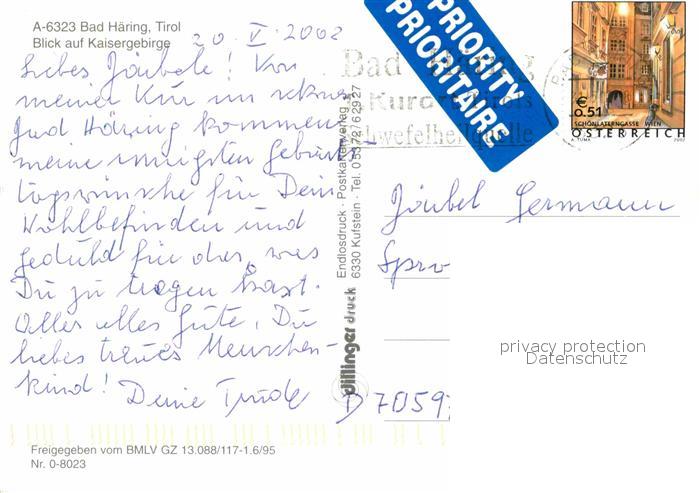 A-6323 Bad Häring, Tirol
Blick auf Kaisergebirge
20. V. 2002
Liebes Jäubele! Von
meiner Kur im schönen
Bad Häring kommen
meine innigsten Geburts-
tagswünsche für Dein
Wohlbefinden und
Geduld für das, was
Du zu tragen hast.
Alles alles Gute, Du
liebes treues Menschen-
kind! Deine Trude
Freigegeben vom BMLV GZ 13.088/117-1.6/95
Nr. 0-8023
dillinger druck
Endlosdruck · Postkartenverlag
6330 Kufstein · Tel. 05372/62927
PRIORITY
PRIORITAIRE
Bad Häring
Kurort Tirols
Schwefelheilquelle
€ 0.51
SCHÖNLATERNGASSE WIEN
ÖSTERREICH
A. TUMA 2002
Jäubel Germann
D 7059
privacy protection
Datenschutz